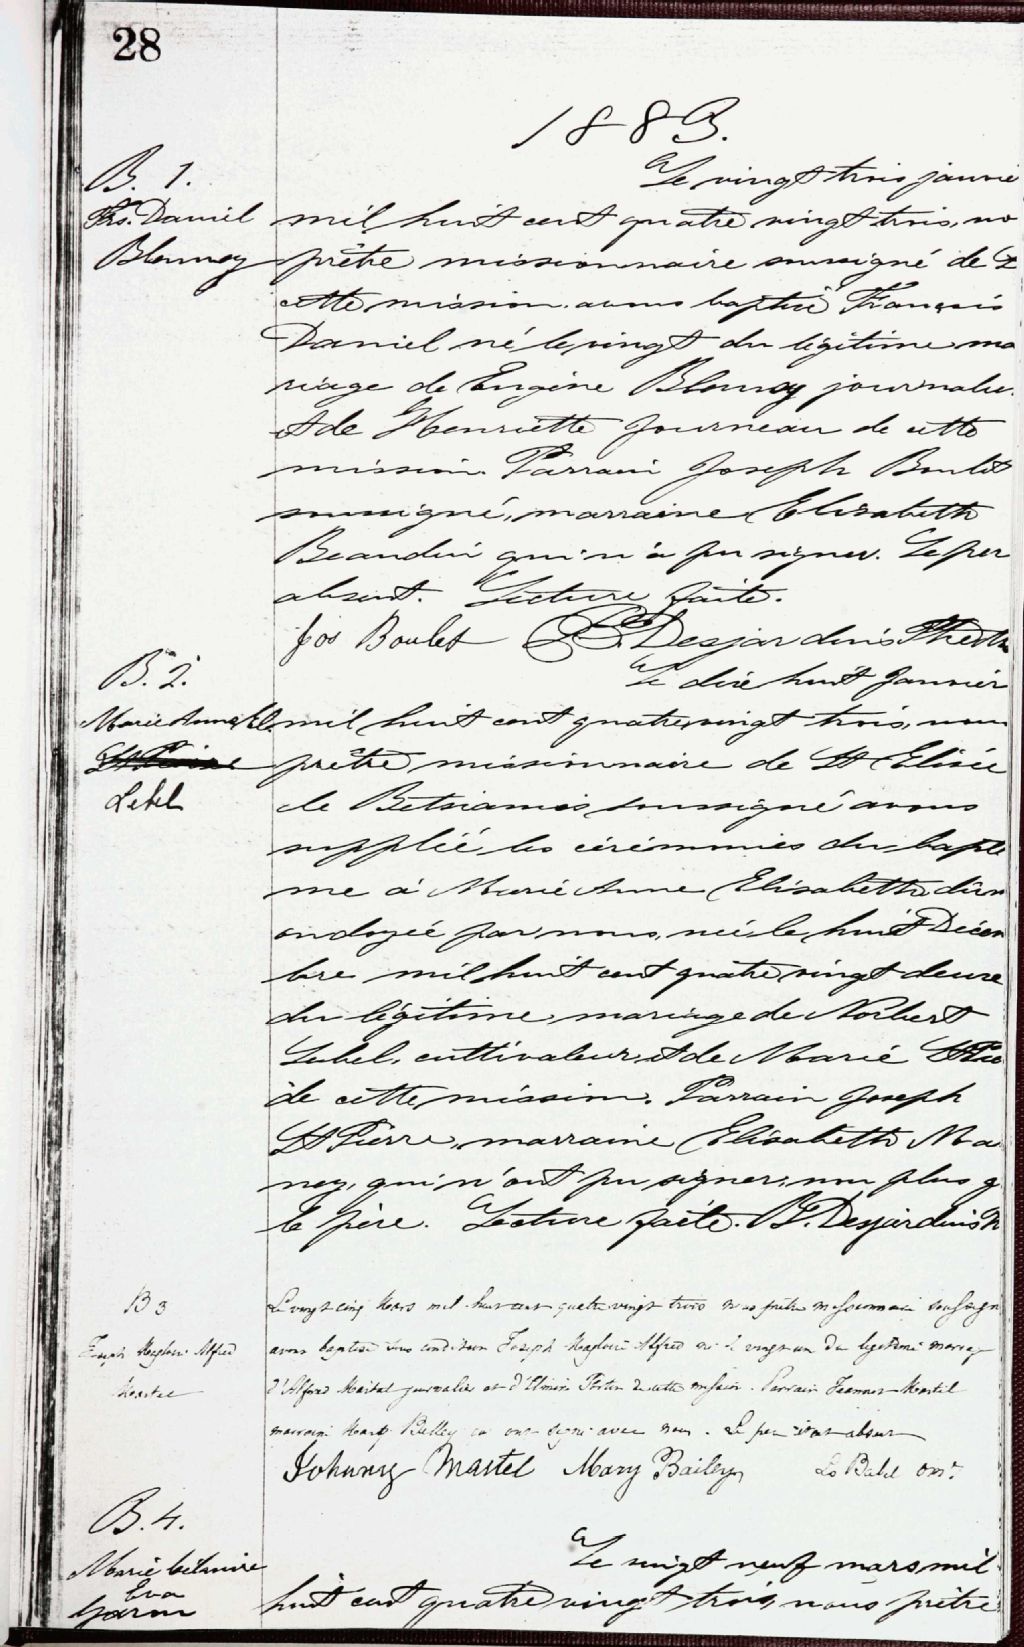 28
1883.
B. 1.
Frs. Daniel
Blouney
Le vingt trois janvie
mil huit cent quatre vingt trois, no
prêtre missionnaire soussigné de
cette mission avons baptisé François
Daniel né le vingt du légitime ma
riage de Eugène journalie
et de Henriette Journeau de cette
mission. Parrain Joseph Boulet
soussigné, marraine Elisabeth
Beaudin qui n'a pu signer. Le per
absent. Lecture faite.
Jos Boulet Desjardins Ptre
B. 2.
Marie Anne El.
St Pierre
Lebel
Le dix huit Janvier
mil huit cent quatre vingt trois, nous
prêtre missionnaire de St Elisée
de Betsiamis soussigné avons
supplié les cérémonies du baptê
me à Marie Anne Elisabeth
ondoyée par nous, née le huit Décem
bre mil huit cent quatre vingt deux
du légitime mariage de Norbert
Lebel, cultivateur, et de Marie St Pie
de cette mission. Parrain Joseph
St Pierre, marraine Elisabeth Ma
ney, qui n'ont pu signer, non plus q
le père. Lecture faite. Desjardins
B 3
Joseph Magloire Alfred
Martel
Le vingt cinq Mars mil huit cent quatre vingt trois nous prêtre missionnaire soussign
avons baptisé sous condition Joseph Magloire Alfred né le vingt un du legitime mariag
d'Alfred Martel journalier et d'Elmire Fortin de cette mission. Parrain Martel
marraine Mary Bailey qui ont signé avec nous. Le pere etait absent
Johnny Martel Mary Bailey Ls Babel OMI
B. 4.
Marie Célanire
Eva
Garon
Le vingt neuf mars mil
huit cent quatre vingt trois, nous prêtre